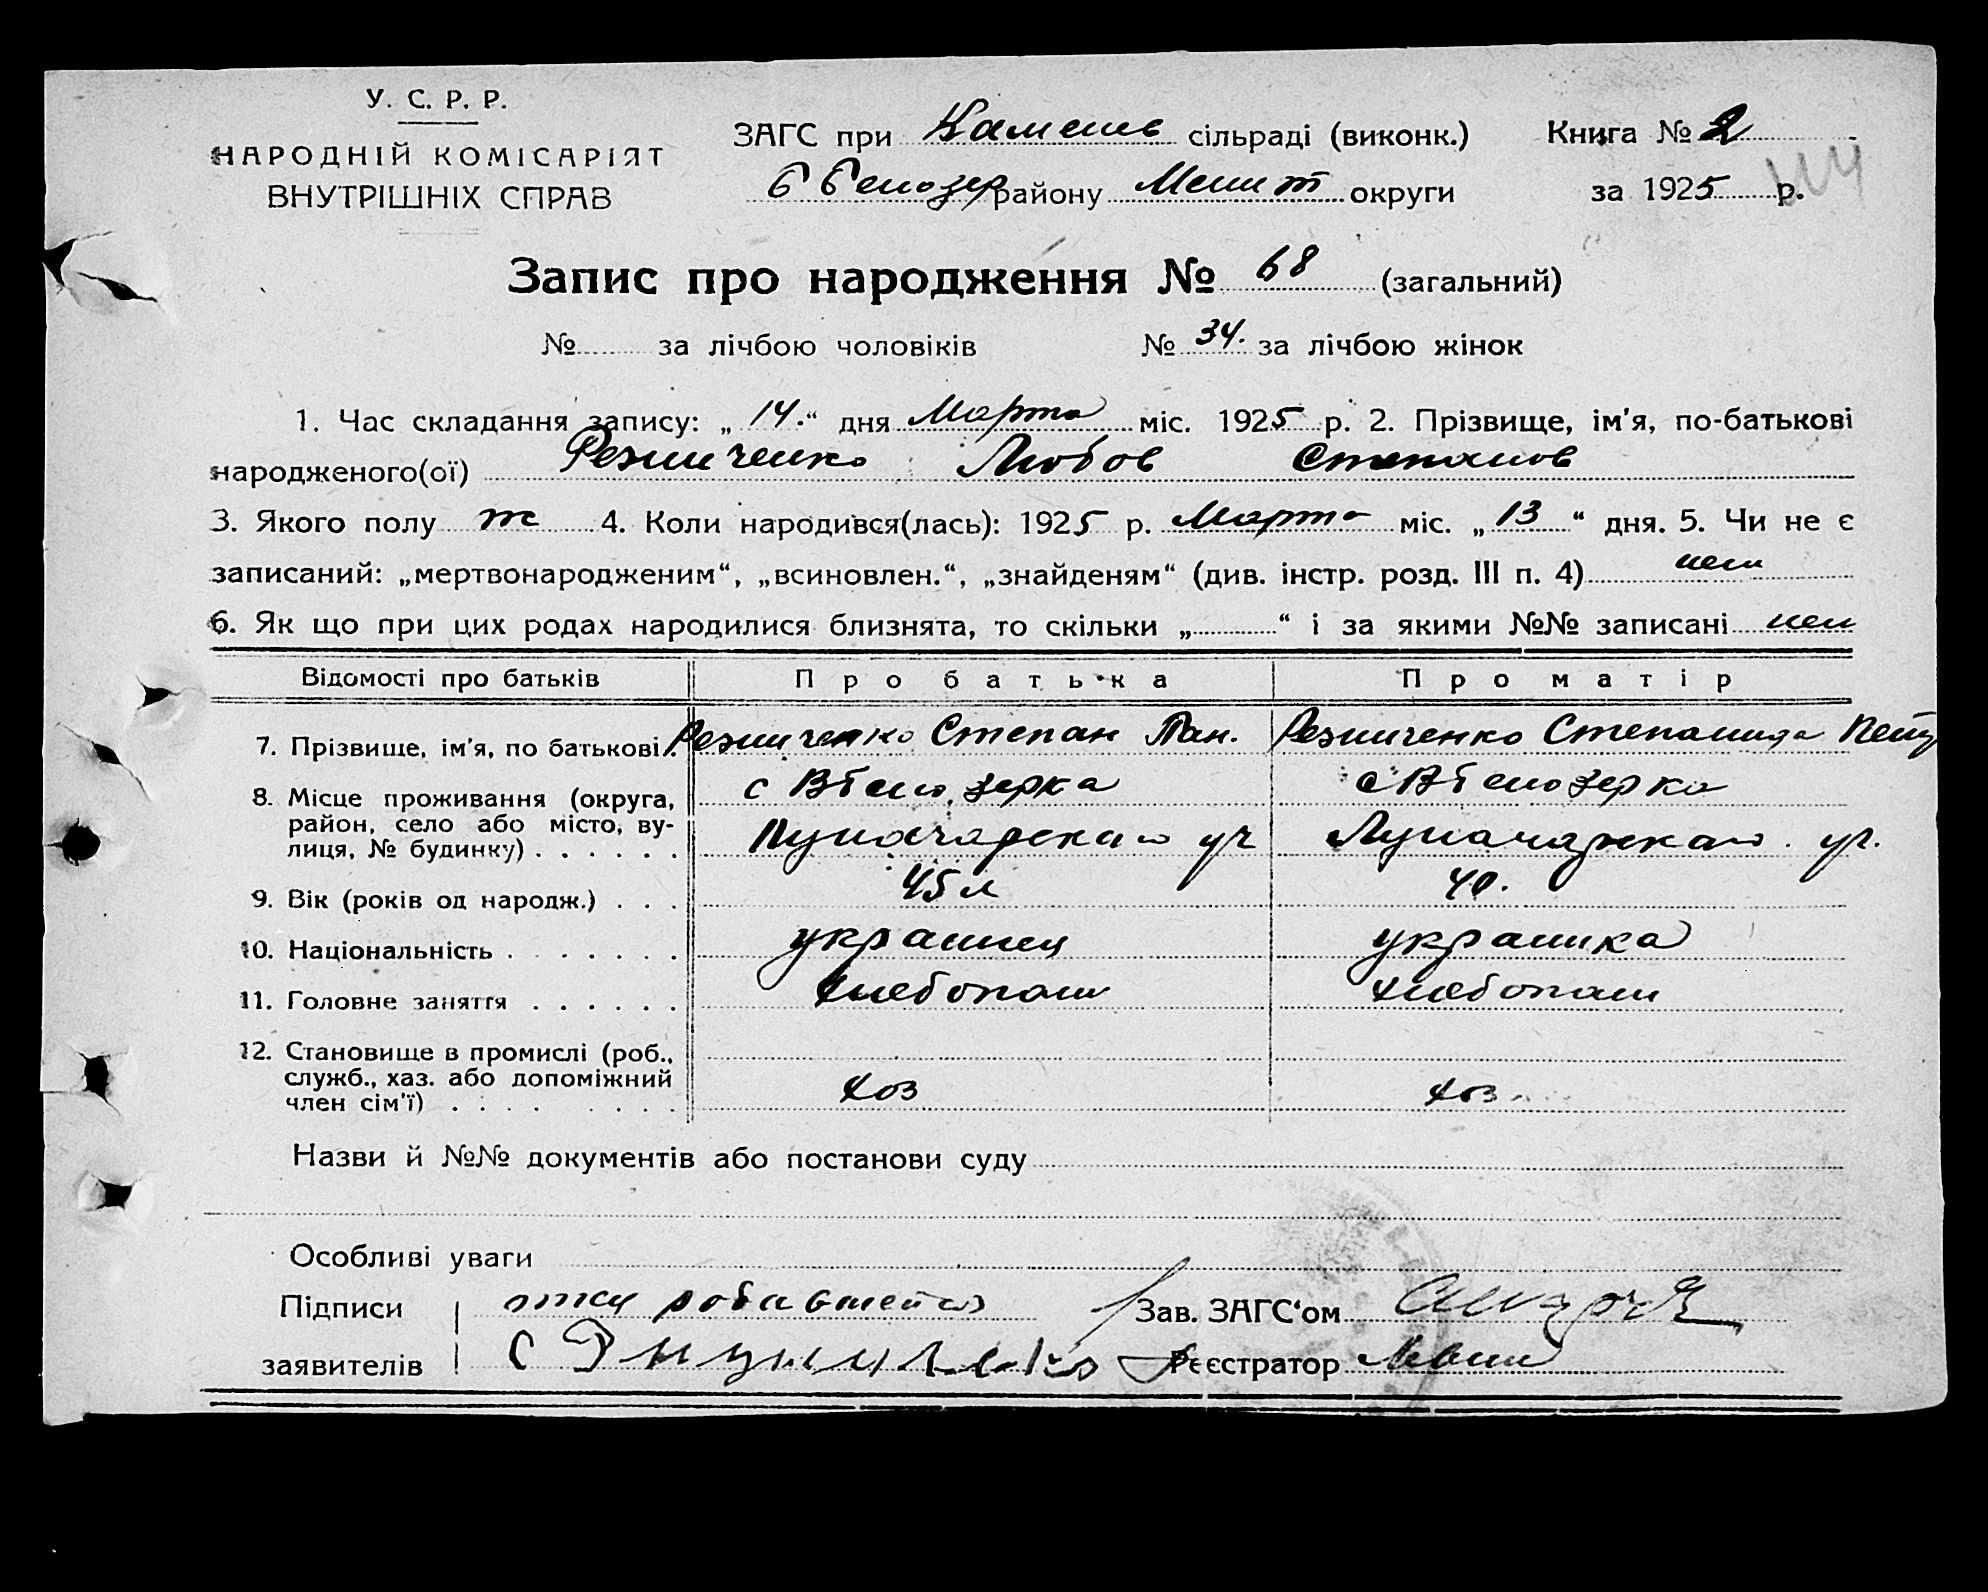 У. С. Р. Р.
НАРОДНІЙ КОМІСАРІЯТ
ВНУТРІШНІХ СПРАВ
ЗАГС при Каменев сільраді (виконк.)
В Белозер району Мелит округи
Книга № 2
за 1925 р.
Запис про народження № 68 (загальний)
№ за лічбою чоловіків № 34. за лічбою жінок
1. Час складання запису: „ 14.“ дня Марта міс. 1925 р. 2. Прізвище, ім'я, по-батькові
народженого(ої) Резниченко Любов Степанов
3. Якого полу ж 4. Коли народився(лась): 1925 р. Марта міс. „ 13 “ дня. 5. Чи не є
записаний: „мертвонародженим“, „всиновлен.“, „знайденям“ (див. інстр. розд. III п. 4) нет
6. Як що при цих родах народилися близнята, то скільки „ “ і за якими №№ записані нет
Відомості про батьків Про батька Про матір
7. Прізвище, ім'я, по батькові. Резниченко Степан Пан. Резниченко Степанида Пет
8. Місце проживання (округа, район, село або місто, вулиця, № будинку) с В Белозерка с В Белозерка
Луначарскаго ул Луначарскаго ул.
9. Вік (років од народж.) 45 л 40.
10. Національність украинец украинка
11. Головне заняття хлебопаш хлебопаш
12. Становище в промислі (роб., служб., хаз. або допоміжний член сім'ї) хоз хоз
Назви й №№ документів або постанови суду
Особливі уваги
Підписи отец Зав. ЗАГС‘ом
заявителів С Реєстратор